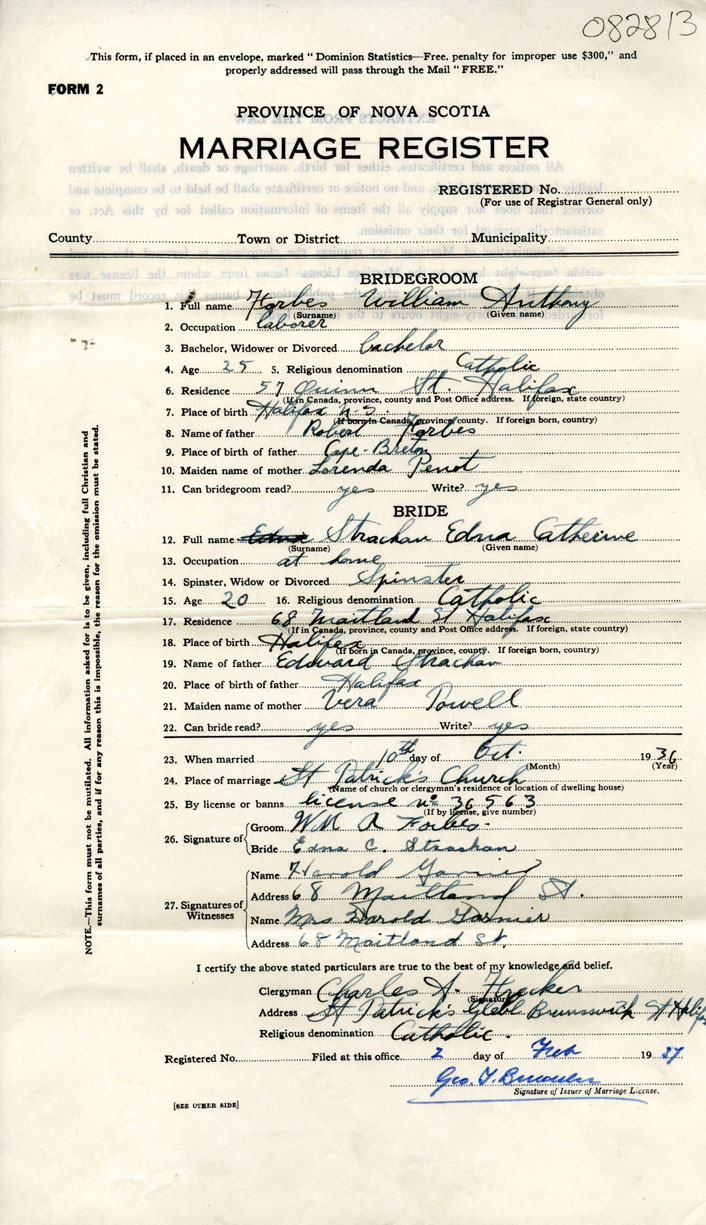 082813
This form, if placed in an envelope, marked "Dominion Statistics—Free, penalty for improper use $300," and
properly addressed will pass through the Mail "FREE."
FORM 2
PROVINCE OF NOVA SCOTIA
MARRIAGE REGISTER
REGISTERED No.
(For use of Registrar General only)
County Town or District Municipality
BRIDEGROOM
1. Full name Forbes William Anthony
(Surname) (Given name)
2. Occupation laborer
3. Bachelor, Widower or Divorced bachelor
4. Age 25 5. Religious denomination Catholic
6. Residence 57 Quinn St. Halifax
(If in Canada, province, county and Post Office address. If foreign, state country)
7. Place of birth Halifax N.S.
(If born in Canada, province, county. If foreign born, country)
8. Name of father Robert Forbes
9. Place of birth of father Cape-Breton
10. Maiden name of mother Lorenda
11. Can bridegroom read? yes Write? yes
BRIDE
12. Full name Edna Strachan Edna Catherine
(Surname) (Given name)
13. Occupation at home
14. Spinster, Widow or Divorced Spinster
15. Age 20 16. Religious denomination Catholic
17. Residence 68 Maitland St Halifax
(If in Canada, province, county and Post Office address. If foreign, state country)
18. Place of birth Halifax
(If born in Canada, province, county. If foreign born, country)
19. Name of father Edward Strachan
20. Place of birth of father Halifax
21. Maiden name of mother Vera Powell
22. Can bride read? yes Write? yes
23. When married 10th day of Oct. 1936
(Month) (Year)
24. Place of marriage St Patrick's Church
(Name of church or clergyman's residence or location of dwelling house)
25. By license or banns license no 36563
(If by license, give number)
26. Signature of
Groom Wm A Forbes
Bride Edna C. Strachan
27. Signatures of Witnesses
Name Harold Garnier
Address 68 Maitland St.
Name Mrs Harold Garnier
Address 68 Maitland St.
I certify the above stated particulars are true to the best of my knowledge and belief.
Clergyman Charles A.
(Signature)
Address St Patrick's Glebe Brunswick St Halifax
Religious denomination Catholic.
Registered No. Filed at this office 2 day of Feb 1937
Geo. T.
Signature of Issuer of Marriage License.
[SEE OTHER SIDE]
NOTE.—This form must not be mutilated. All information asked for is to be given, including full Christian and
surnames of all parties, and if for any reason this is impossible, the reason for the omission must be stated.